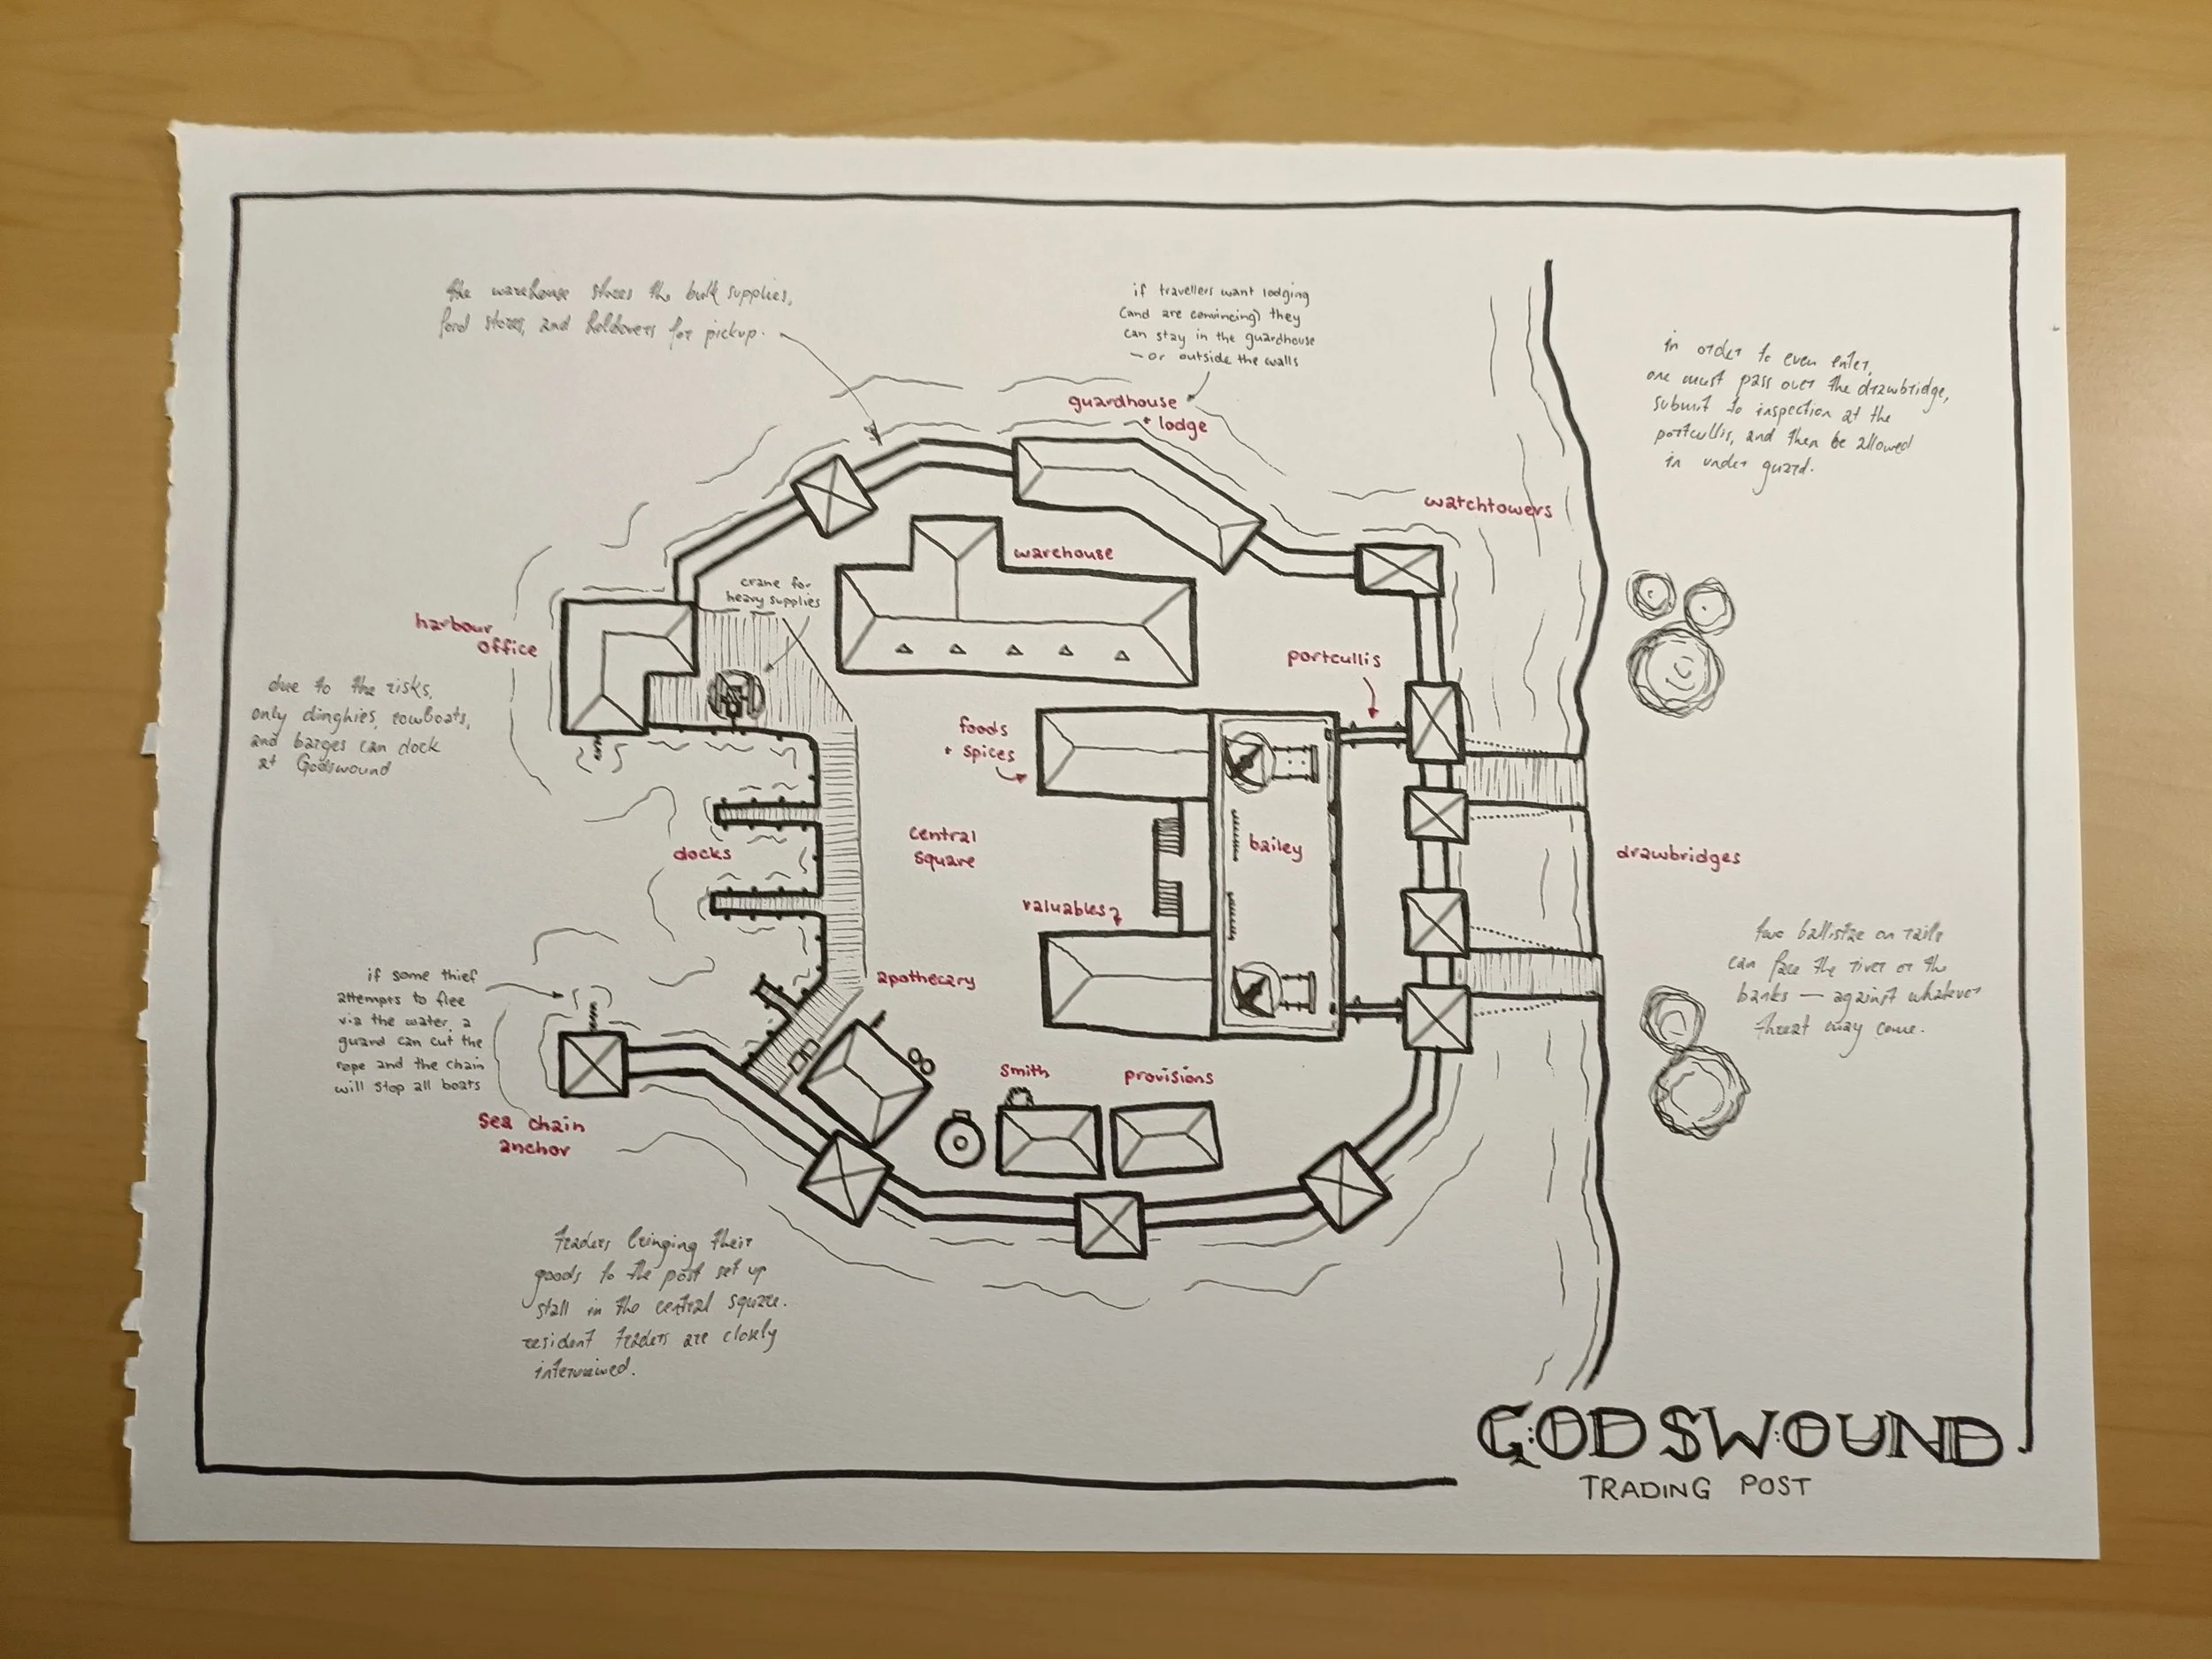 the warehouse stores the bulk supplies,
food stores, and holdovers for pickup.
if travellers want lodging
(and are convincing) they
can stay in the guardhouse
— or outside the walls
in order to even enter,
one must pass over the drawbridge,
submit to inspection at the
portcullis, and then be allowed
in under guard.
guardhouse
+ lodge
watchtowers
warehouse
crane for
heavy supplies
harbour
office
portcullis
due to the risks,
only dinghies, rowboats,
and barges can dock
at Godswound
foods
+ spices
central
square
bailey
docks
drawbridges
valuables
two ballistae on rails
can face the river or the
banks — against whatever
threat may come.
apothecary
if some thief
attempts to flee
via the water, a
guard can cut the
rope and the chain
will stop all boats
smith
provisions
sea chain
anchor
traders bringing their
goods to the post set up
stall in the central square.
resident traders are closely
interviewed.
GODSWOUND
TRADING POST